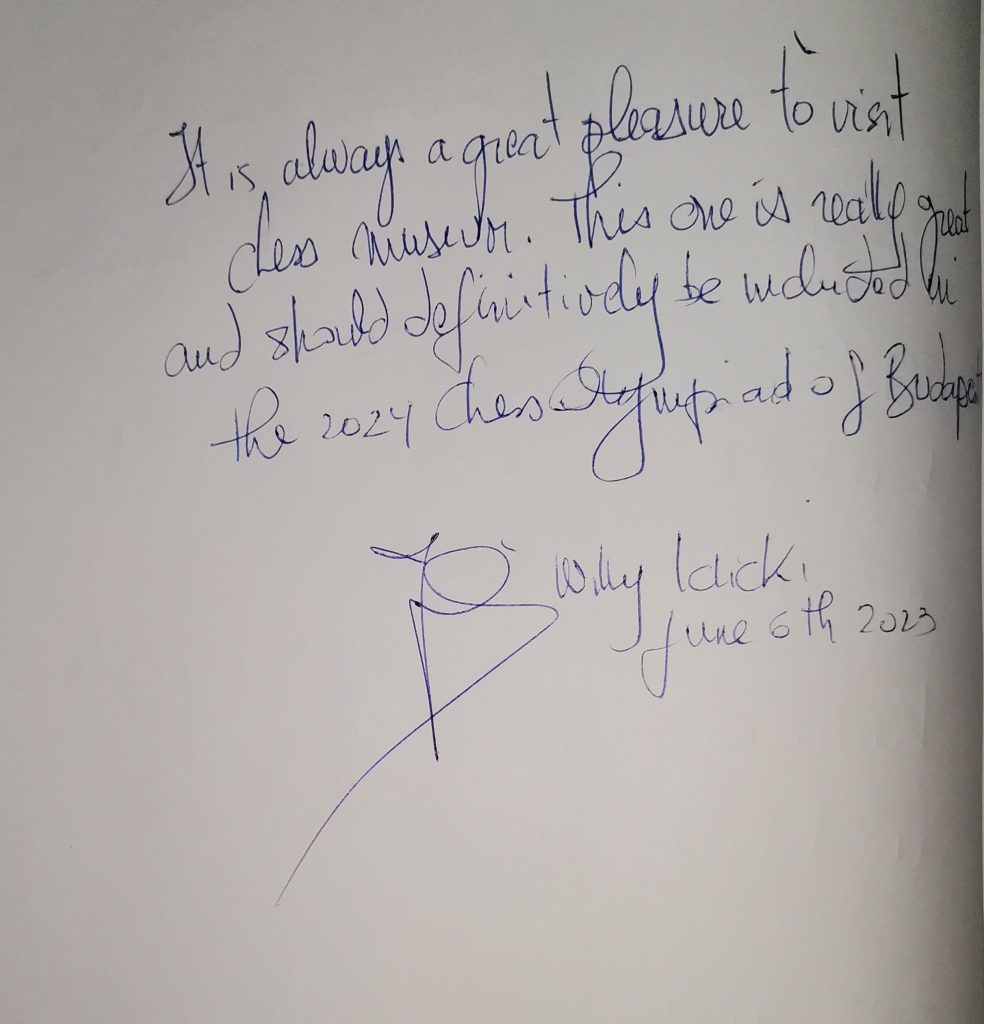 It is always a great pleasure to visit
chess museum. This one is really great
and should definitively be included in
the 2024 Chess Olympiad of Budapest
Willy Iclicki
June 6th 2023